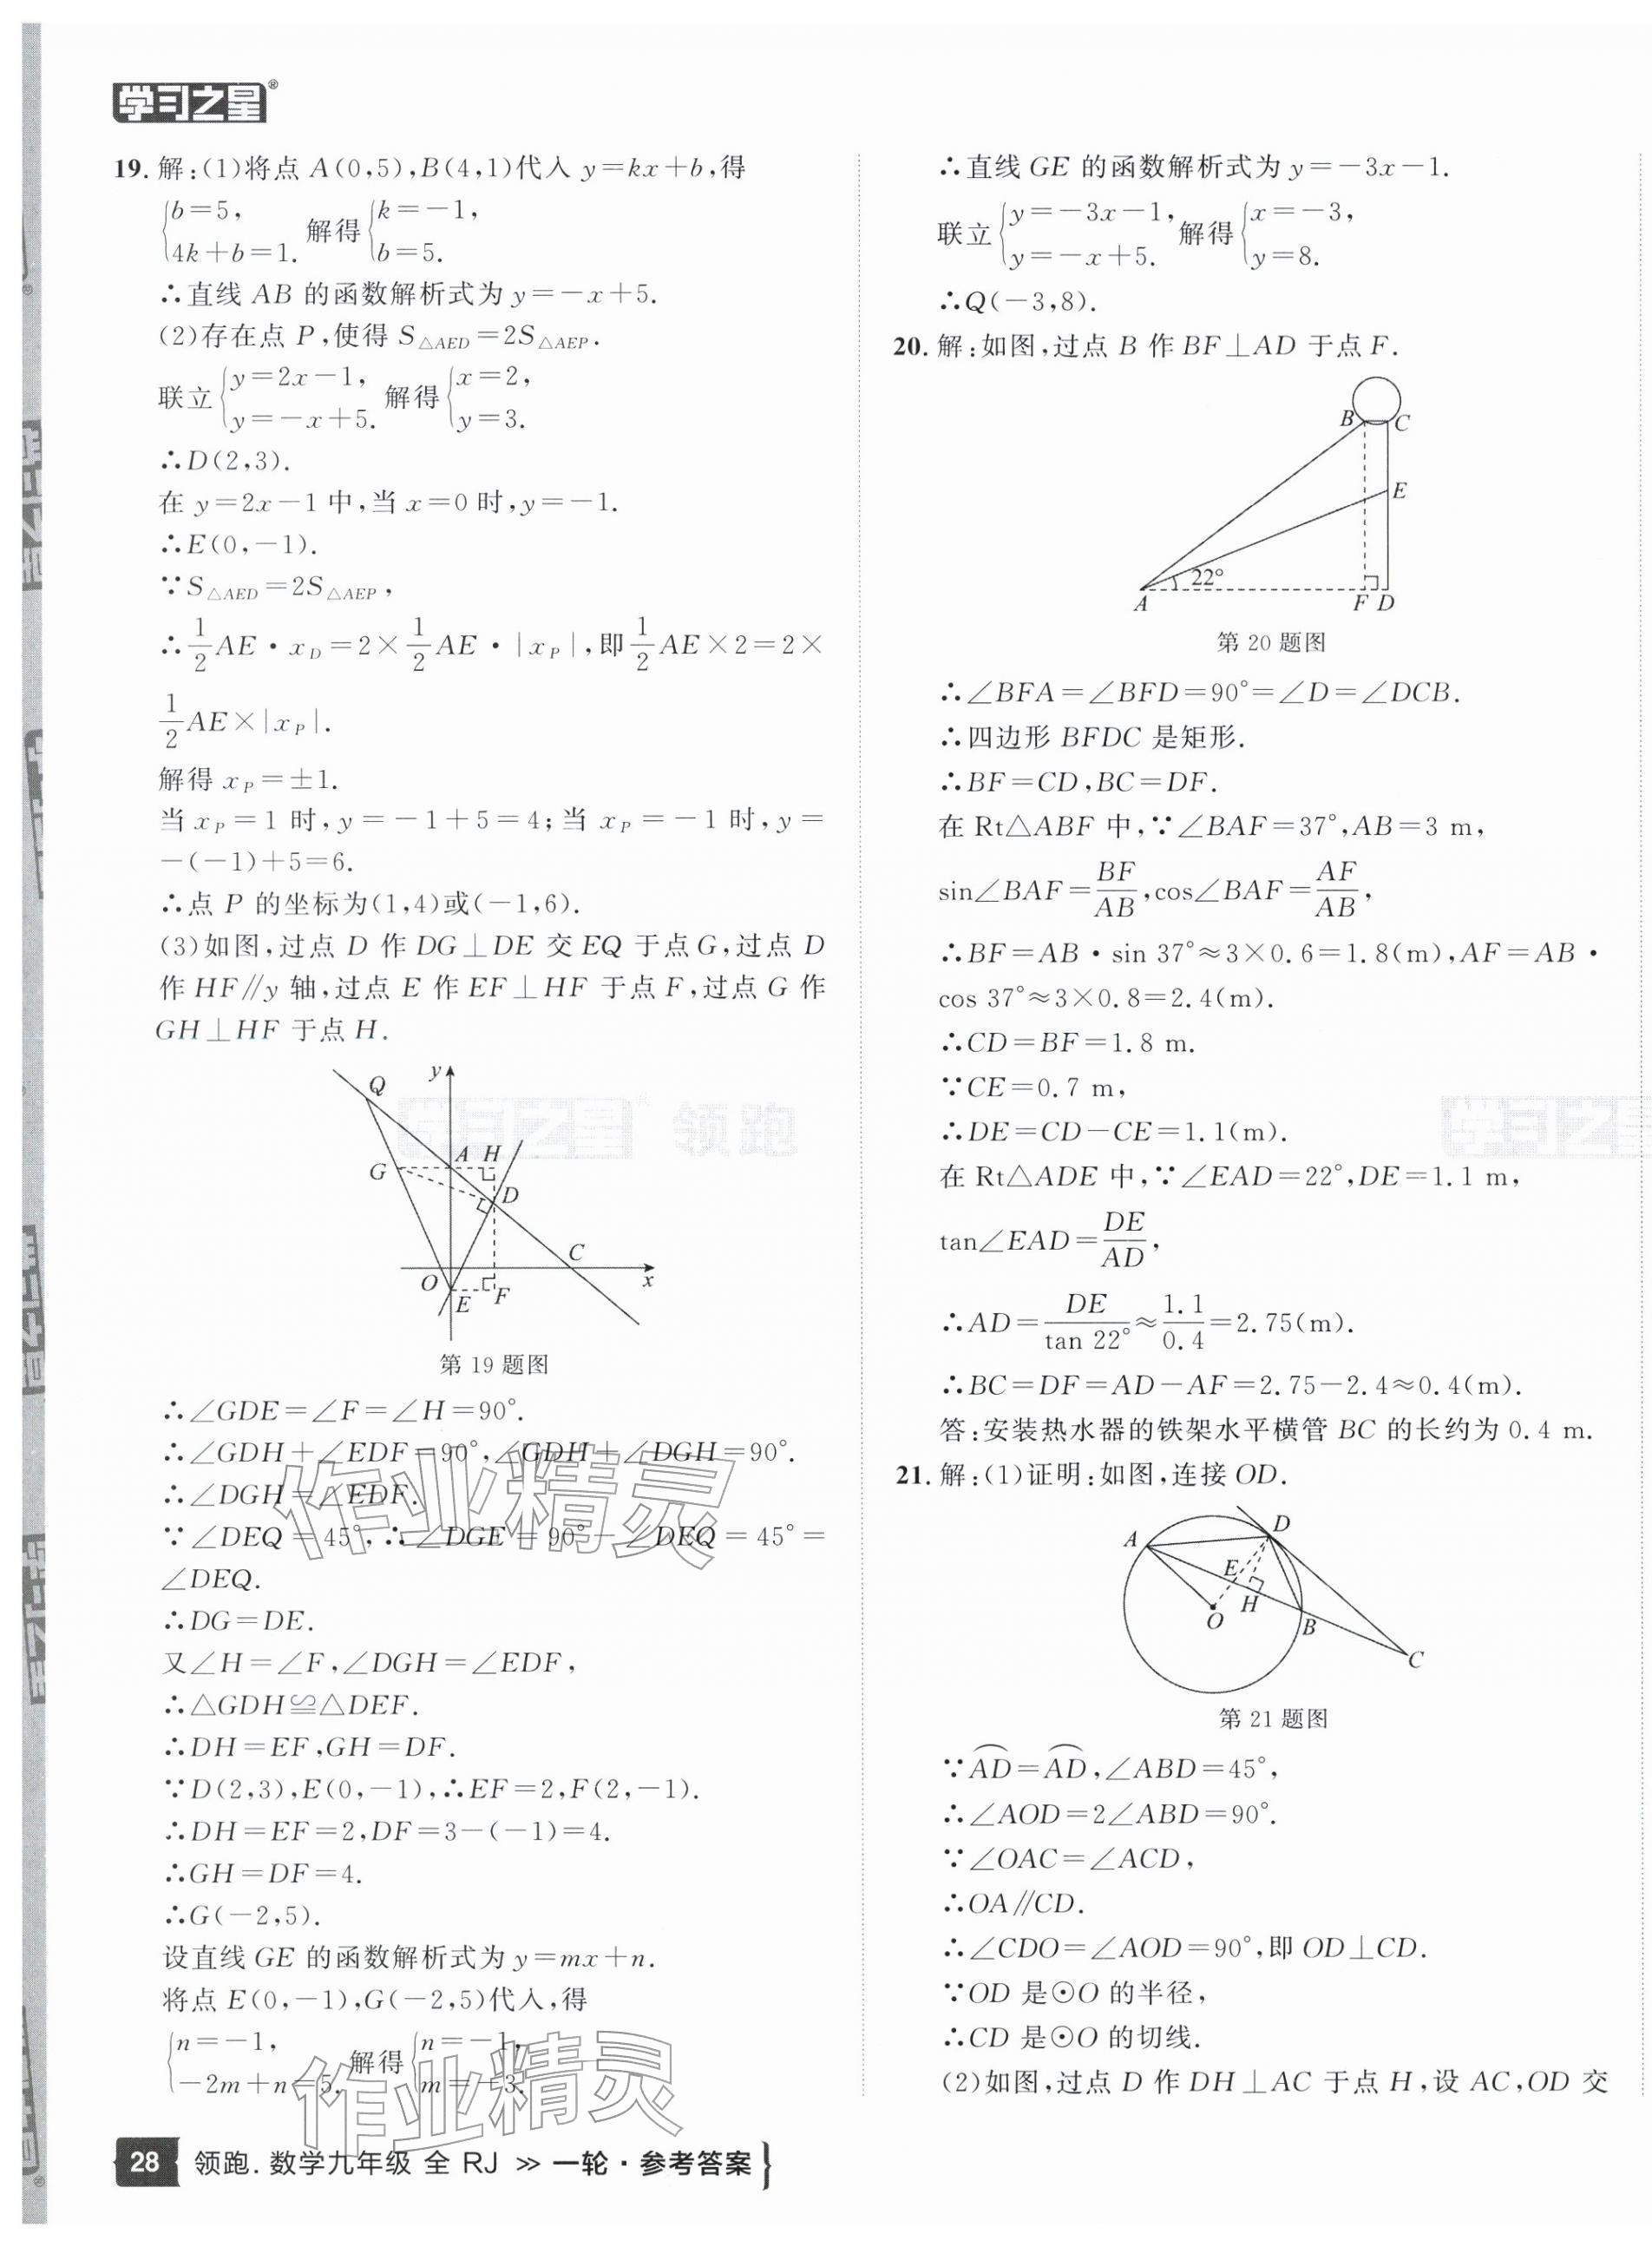 学习之星®
19. 解:(1)将点 A(0,5),B(4,1)代入 y=kx+b,得
{b=5, 4k+b=1. 解得{k=-1, b=5.
∴直线 AB 的函数解析式为 y=-x+5.
(2)存在点 P,使得 S△AED=2S△AEP.
联立{y=2x-1, y=-x+5. 解得{x=2, y=3.
∴D(2,3).
在 y=2x-1 中,当 x=0 时,y=-1.
∴E(0,-1).
∵S△AED=2S△AEP,
∴1/2 AE·x_D=2×1/2 AE·|x_P|,即1/2 AE×2=2×
1/2 AE×|x_P|.
解得 x_P=±1.
当 x_P=1 时,y=-1+5=4;当 x_P=-1 时,y=
-(-1)+5=6.
∴点 P 的坐标为(1,4)或(-1,6).
(3)如图,过点 D 作 DG⊥DE 交 EQ 于点G,过点 D
作 HF∥y 轴,过点 E 作 EF⊥HF 于点 F,过点 G 作
GH⊥HF 于点 H.
Q
y
A H
G
D
C
O
x
E F
第 19 题图
∴∠GDE=∠F=∠H=90°.
∴∠GDH+∠EDF=90°,∠GDH+∠DGH=90°.
∴∠DGH=∠EDF.
∵∠DEQ=45°,∴∠DGE=90°-∠DEQ=45°=
∠DEQ.
∴DG=DE.
又∠H=∠F,∠DGH=∠EDF,
∴△GDH≌△DEF.
∴DH=EF,GH=DF.
∵D(2,3),E(0,-1),∴EF=2,F(2,-1).
∴DH=EF=2,DF=3-(-1)=4.
∴GH=DF=4.
∴G(-2,5).
设直线 GE 的函数解析式为 y=mx+n.
将点 E(0,-1),G(-2,5)代入,得
{n=-1, -2m+n=5. 解得{n=-1, m=-3.
∴直线 GE 的函数解析式为 y=-3x-1.
联立{y=-3x-1, y=-x+5. 解得{x=-3, y=8.
∴Q(-3,8).
20. 解:如图,过点 B 作 BF⊥AD 于点 F.
B C
E
22°
A F D
第 20 题图
∴∠BFA=∠BFD=90°=∠D=∠DCB.
∴四边形 BFDC 是矩形.
∴BF=CD,BC=DF.
在 Rt△ABF 中,∵∠BAF=37°,AB=3 m,
sin∠BAF=BF/AB,cos∠BAF=AF/AB,
∴BF=AB·sin 37°≈3×0.6=1.8(m),AF=AB·
cos 37°≈3×0.8=2.4(m).
∴CD=BF=1.8 m.
∵CE=0.7 m,
∴DE=CD-CE=1.1(m).
在 Rt△ADE 中,∵∠EAD=22°,DE=1.1 m,
tan∠EAD=DE/AD,
∴AD=DE/tan 22°≈1.1/0.4=2.75(m).
∴BC=DF=AD-AF=2.75-2.4≈0.4(m).
答:安装热水器的铁架水平横管 BC 的长约为 0.4 m.
21. 解:(1)证明:如图,连接 OD.
A
D
E
H
O
B
C
第 21 题图
∵⌒AD=⌒AD,∠ABD=45°,
∴∠AOD=2∠ABD=90°.
∵∠OAC=∠ACD,
∴OA∥CD.
∴∠CDO=∠AOD=90°,即 OD⊥CD.
∵OD 是⊙O 的半径,
∴CD 是⊙O 的切线.
(2)如图,过点 D 作 DH⊥AC 于点 H,设 AC,OD 交
28 领跑. 数学九年级 全 RJ >> 一轮·参考答案
学习之星® 领跑
学习之星
作业精灵
作业精灵